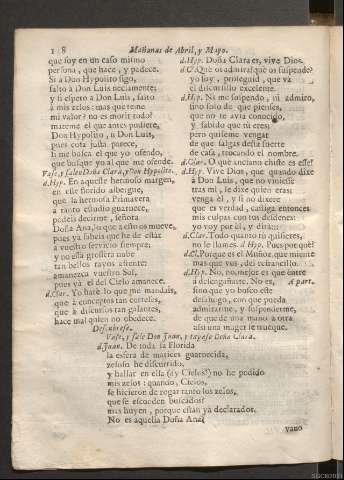 18 Mañanas de Abril, y Mayo.
que soy en un caso mismo
persona, que hace, y padece.
Si a Don Hypolito sigo,
falto à Don Luis neciamente;
y si espero a Don Luis, falto
à mis zelos: mas què teme
mi valor? no es morir todo?
mateme el que antes pudiere,
Don Hypolito, ù Don Luis,
pues cosa justa parece,
si me busca el que yo ofendo,
que busque yo al que me ofende.
Vase, y salen Doña Clara, y Don Hypolito.
d.Hyp. En aqueste hermoso margen,
en este florido albergue,
que la hermosa Primavera
a tanto estudio guarnece,
podeis decirme, señora
Doña Ana, lo que a esto os mueve,
pues ya sabeis que he de estàr
a vuestro servicio siempre;
y no esta grossera nube
tan bellos rayos afrente:
amanezca vuestro Sol,
pues ya el del Cielo amanece.
d.Clar. Yo harè lo que me mandais,
que à conceptos tan corteses,
que à discursos tan galantes,
hace mal quien no obedece.
Descubrese.
d.Hyp. Doña Clara es, vive Dios.
d.C. Què os admira? què os suspende?
yo soy, proseguid, que và
el discursillo excelente.
d.Hyp. Ni me suspendo, ni admiro,
sino solo de que pienses,
que no te avia conocido,
y sabido que tù eres;
pero quiseme vengar
de que salgas desta suerte
de casa, trocando el nombre.
d.Clar. O què anciano chiste es esse!
d.Hyp. Vive Dios, que quando dixe
à Don Luis, que no viniesse
tras mi, le dixe quien eras:
venga èl, y si no dixere
que es verdad, castiga entonces
mis culpas con tus desdenes:
yo voy por èl, y dirà::-
d.Clar. Todo quanto tù quisieres;
no le llames. d.Hyp. Pues por què?
d.Cl. Porque es el Muñoz, que miente
mas que vos, del retrancillo.
d.Hyp. No, no, mejor es que entre
à desengañarte. No es, A part.
sino que yo busco este
desahogo, con que pueda
admirarme, y suspenderme,
de que de una mano à otra
assi una muger se trueque.
Vase, y sale Don Juan, y tapase Doña Clara.
d.Juan. De toda la Florida
la esfera de matices guarnecida,
zeloso he discurrido,
y hallar en ella (ay Cielos!) no he podido
mis zelos: quando, Cielos,
se hicieron de rogar tanto los zelos,
que se esconden buscados?
mas huyen, porque estàn ya declarados.
No es aquella Doña Ana?
vano